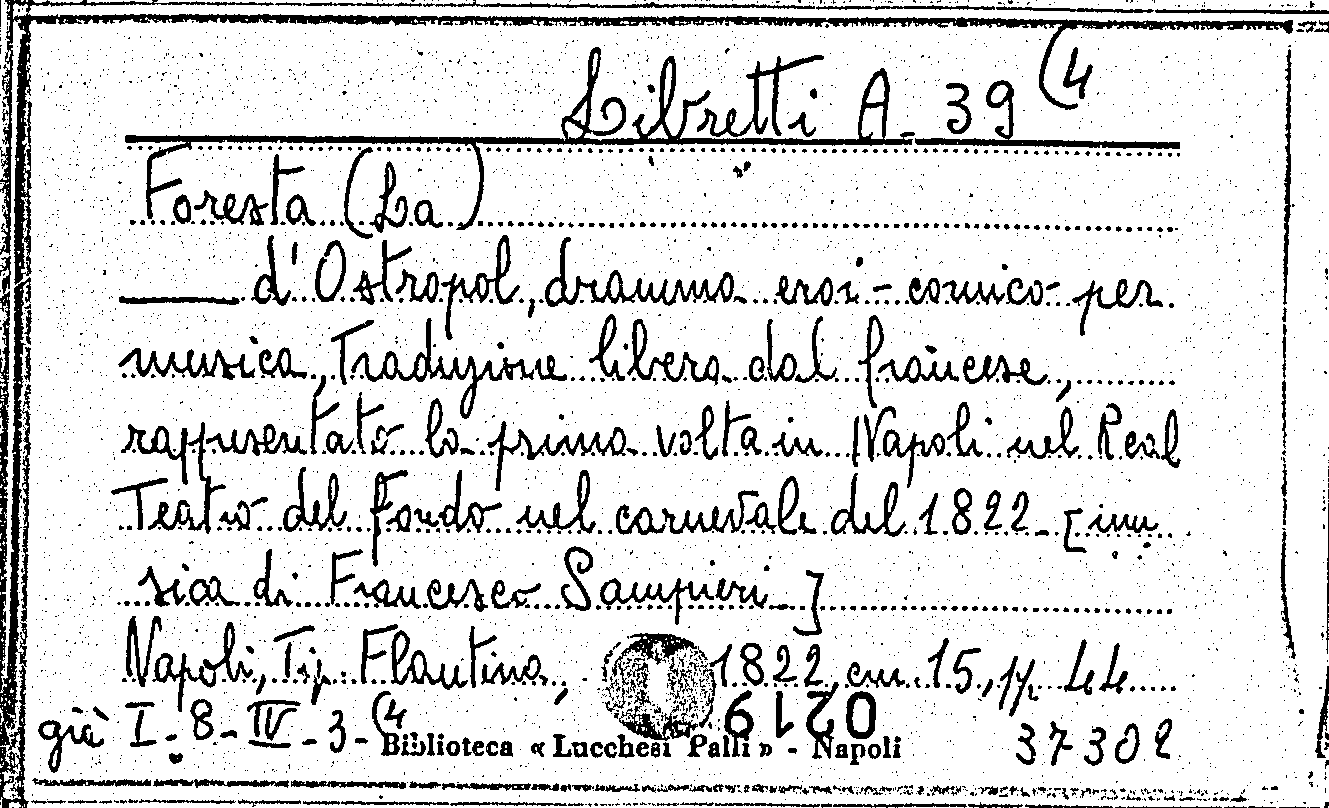 Libretti A - 39 (4
Foresta (La)
____ d'Ostropol, dramma eroi-comico per
musica, Traduzione libera dal francese,
rappresentato la prima volta in Napoli nel Real
Teatro del Fondo nel carnevale del 1822 - [mu
sica di Francesco Sampieri - ]
Napoli, Tip. Flautina, 1822, cm 15, pp. 44
0219
già I - 8 - IV - 3 - (4
Biblioteca « Lucchesi Palli » - Napoli
37302